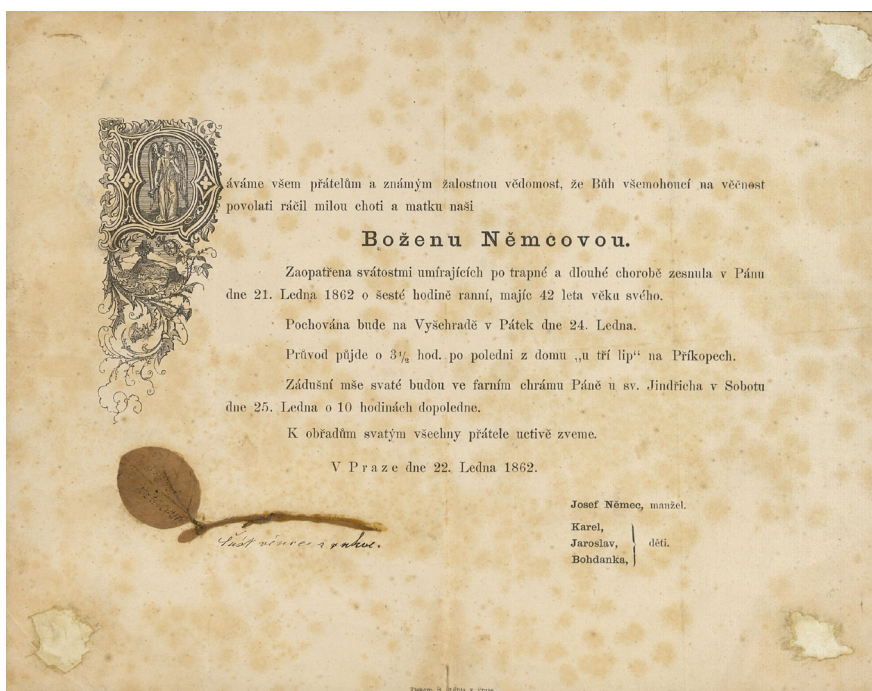 Dáváme všem přátelům a známým žalostnou vědomost, že Bůh všemohoucí na věčnost
povolati ráčil milou choti a matku naši
Boženu Němcovou.
Zaopatřena svátostmi umírajících po trapné a dlouhé chorobě zesnula v Pánu
dne 21. Ledna 1862 o šesté hodině ranní, majíc 42 leta věku svého.
Pochována bude na Vyšehradě v Pátek dne 24. Ledna.
Průvod půjde o 3½ hod. po poledni z domu „u tří lip“ na Příkopech.
Zádušní mše svaté budou ve farním chrámu Páně u sv. Jindřicha v Sobotu
dne 25. Ledna o 10 hodinách dopoledne.
K obřadům svatým všechny přátele uctivě zveme.
V Praze dne 22. Ledna 1862.
Josef Němec, manžel.
Karel,
Jaroslav, děti.
Bohdanka,
část věnce z rakve.